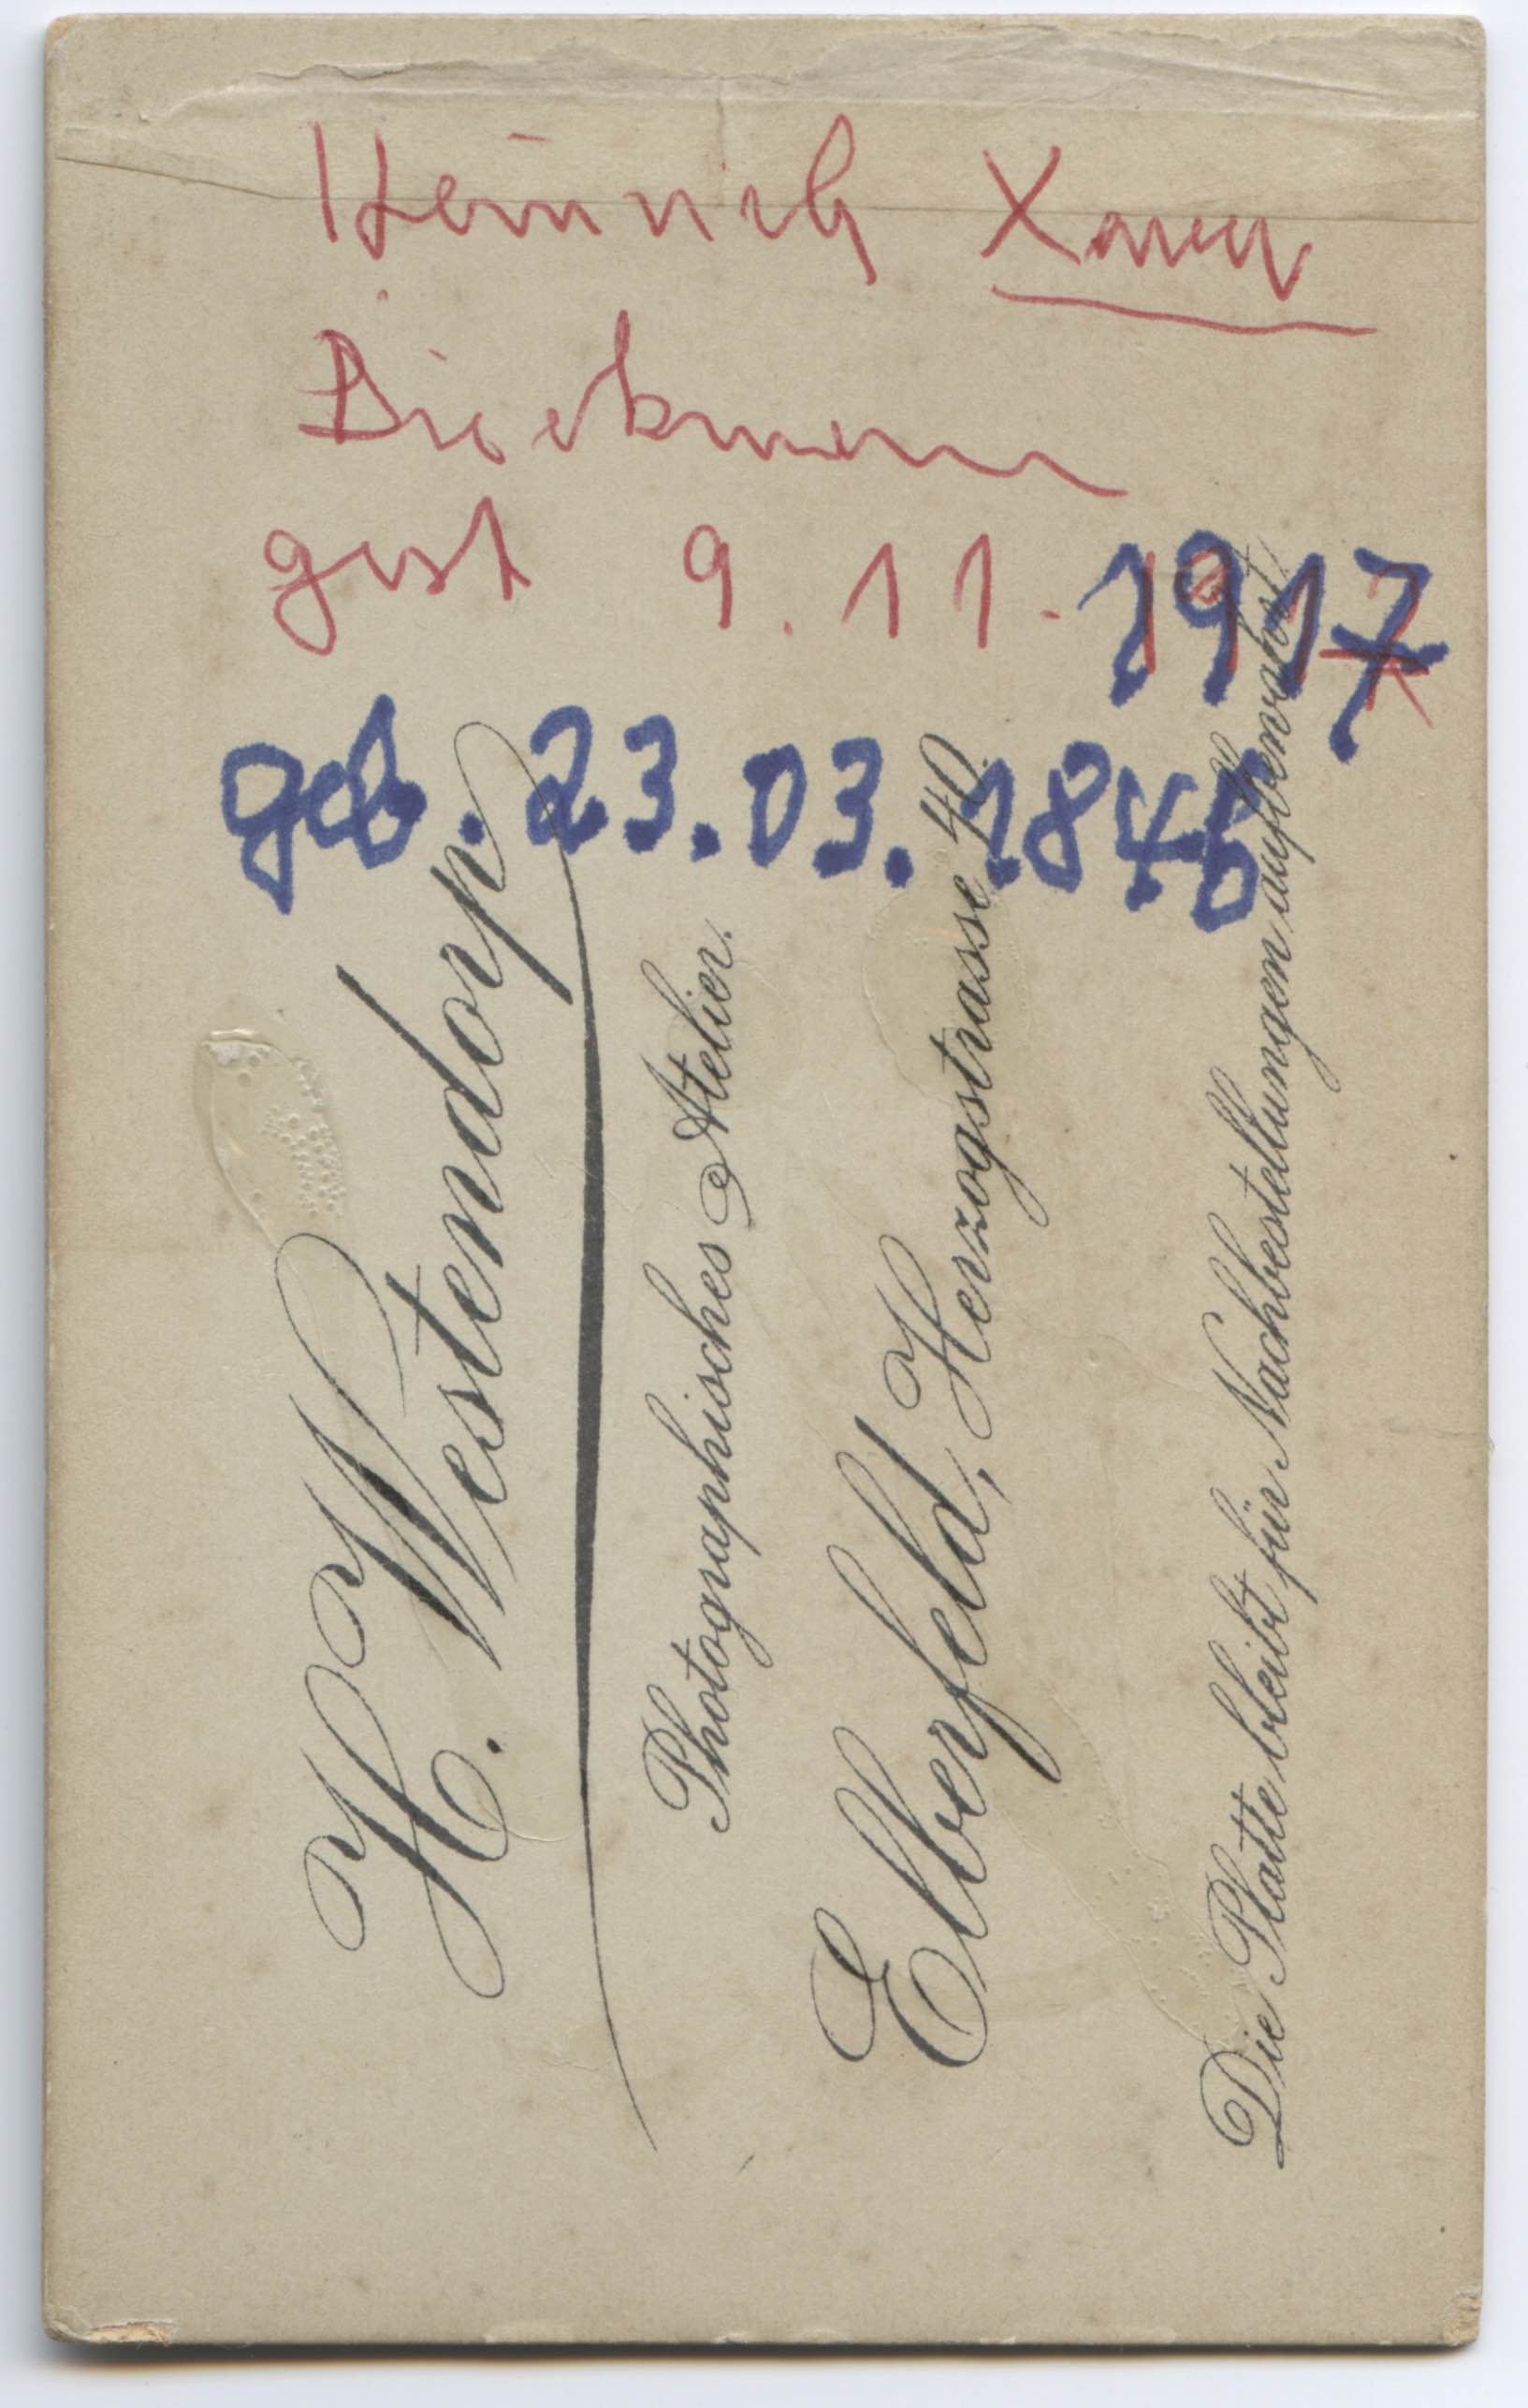 Heinrich Xaver
Dieckmann
gest 9. 11. 1917
geb. 23.03.1846
H. Westendorp
Photographisches Atelier.
Elberfeld, Herzogstrasse 40.
Die Platte bleibt für Nachbestellungen aufbewahrt.